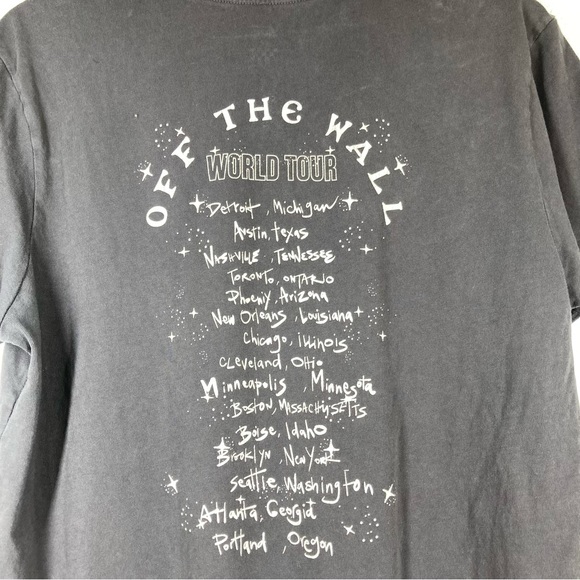 OFF THE WALL
WORLD TOUR
Detroit, Michigan
Austin, texas
NASHVILLE, TENNESSEE
TORONTO, ONTARIO
Phoenix, Arizona
New Orleans, Louisiana
Chicago, Illinois
CLEVELAND, OHIO
Minneapolis, Minnesota
BOSTON, MASSACHUSETTS
Boise, Idaho
Brooklyn, New York
Seattle, Washington
Atlanta, Georgia
Portland, Oregon